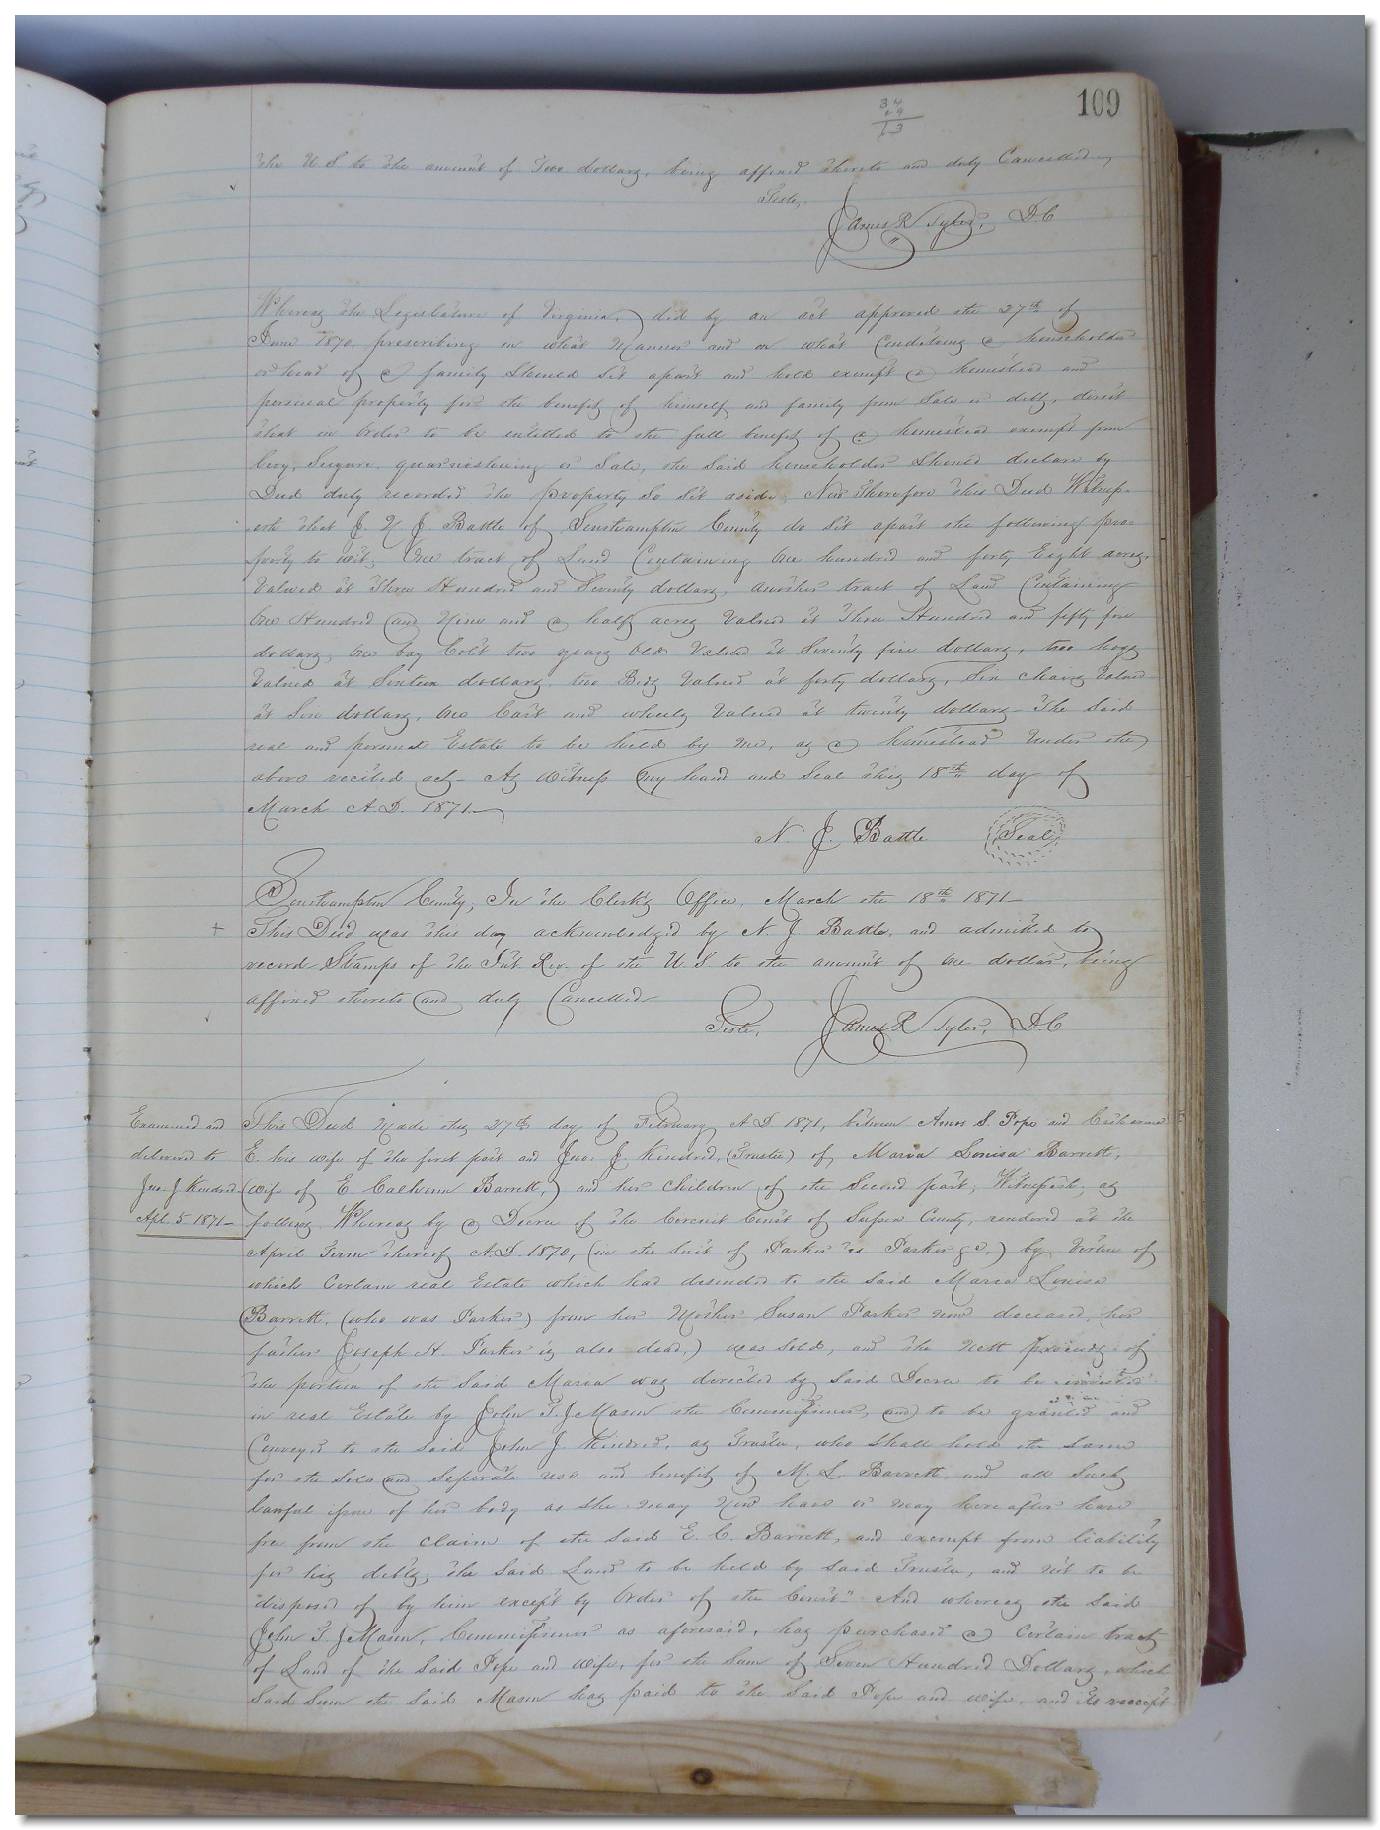 109
34
13
the U. S to the amount of Two dollars, being affixed thereto and duly Cancelled
Teste,
James R Tyler, D.C
Whereas the Legislature of Virginia, did by an act approved the 27th of
June 1870, prescribing in what Manner and on what Conditions a householder
or head of a family Should Set apart and hold exempt a homestead and
personal property for the benefit of himself and family from Sale or debts,
that in Order to be entitled to the full benefit of a homestead exempt from
levy, Seizure, or Sale, the Said householder Should declare by
Deed duly recorded the property So Set aside, Now Therefore this Deed Witness-
eth that I, N J. Battle of Southampton County do Set apart the following pro-
perty to wit; One tract of Land Containing One hundred and forty Eight acres,
Valued at Three Hundred and Seventy dollars, another tract of Land Containing
One Hundred and Nine and a half acres Valued at Three Hundred and fifty five
dollars, One bay Colt two years Old Valued at Seventy five dollars, two hogs
Valued at Sixteen dollars, two Beds Valued at forty dollars, Six chairs Valued
at Six dollars, One Cart and wheels Valued at twenty dollars – The Said
real and personal Estate to be held by me, as a homestead Under the
above recited act – As Witness my hand and Seal this 18th day of
March A.D. 1871.
N. J. Battle Seal
Southampton County, In the Clerk's Office, March the 18th 1871–
+ This Deed was this day acknowledged by N. J. Battle, and admitted to
record Stamps of the Int. Rev. of the U S to the amount of One dollar, being
affixed thereto and duly Cancelled
Teste, James R Tyler, D.C
Examined and
delivered to
Jno. J Kindred
Apl. 5 1871–
This Deed Made this 27th day of February A.D 1871, between Amos S. Pope and Catherine
E. his wife of the first part and Jno. J. Kindred, (Trustee) of Maria Louisa Barrett,
(wife of E Calhoun Barrett,) and her Children of the Second part, Witnesseth, as
follows, Whereas by a Decree of the Circuit Court of Sussex County, rendered at the
April Term thereof A.D. 1870, (in the Suit of Parker vs Parker &c.) by Virtue of
which Certain real Estate which had descended to the Said Maria Louisa
Barrett, (who was Parker) from her Mother Susan Parker now deceased, (her
father Joseph H. Parker is also dead,) was Sold, and the Nett proceeds of
the portion of the Said Maria was directed by Said Decree to be invested
in real Estate by John T. J Mason the Commissioner, and to be granted and
Conveyed to the Said John J. Kindred, as Trustee, who Shall hold the Same
for the Sole and Seperate use and benefit of M. L. Barrett, and all Such
lawful issue of her body as She may Now have or may hereafter have
free from the claim of the Said E. C. Barrett, and exempt from liability
for his debts, the Said Land to be held by Said Trustee, and not to be
disposed of by him except by Order of the Court" And whereas the Said
John T. J Mason, Commissioner as aforesaid, has purchased a Certain tract
of Land of the Said Pope and wife, for the Sum of Seven Hundred Dollars, which
Said Sum the Said Mason has paid to the Said Pope and wife, and its receipt